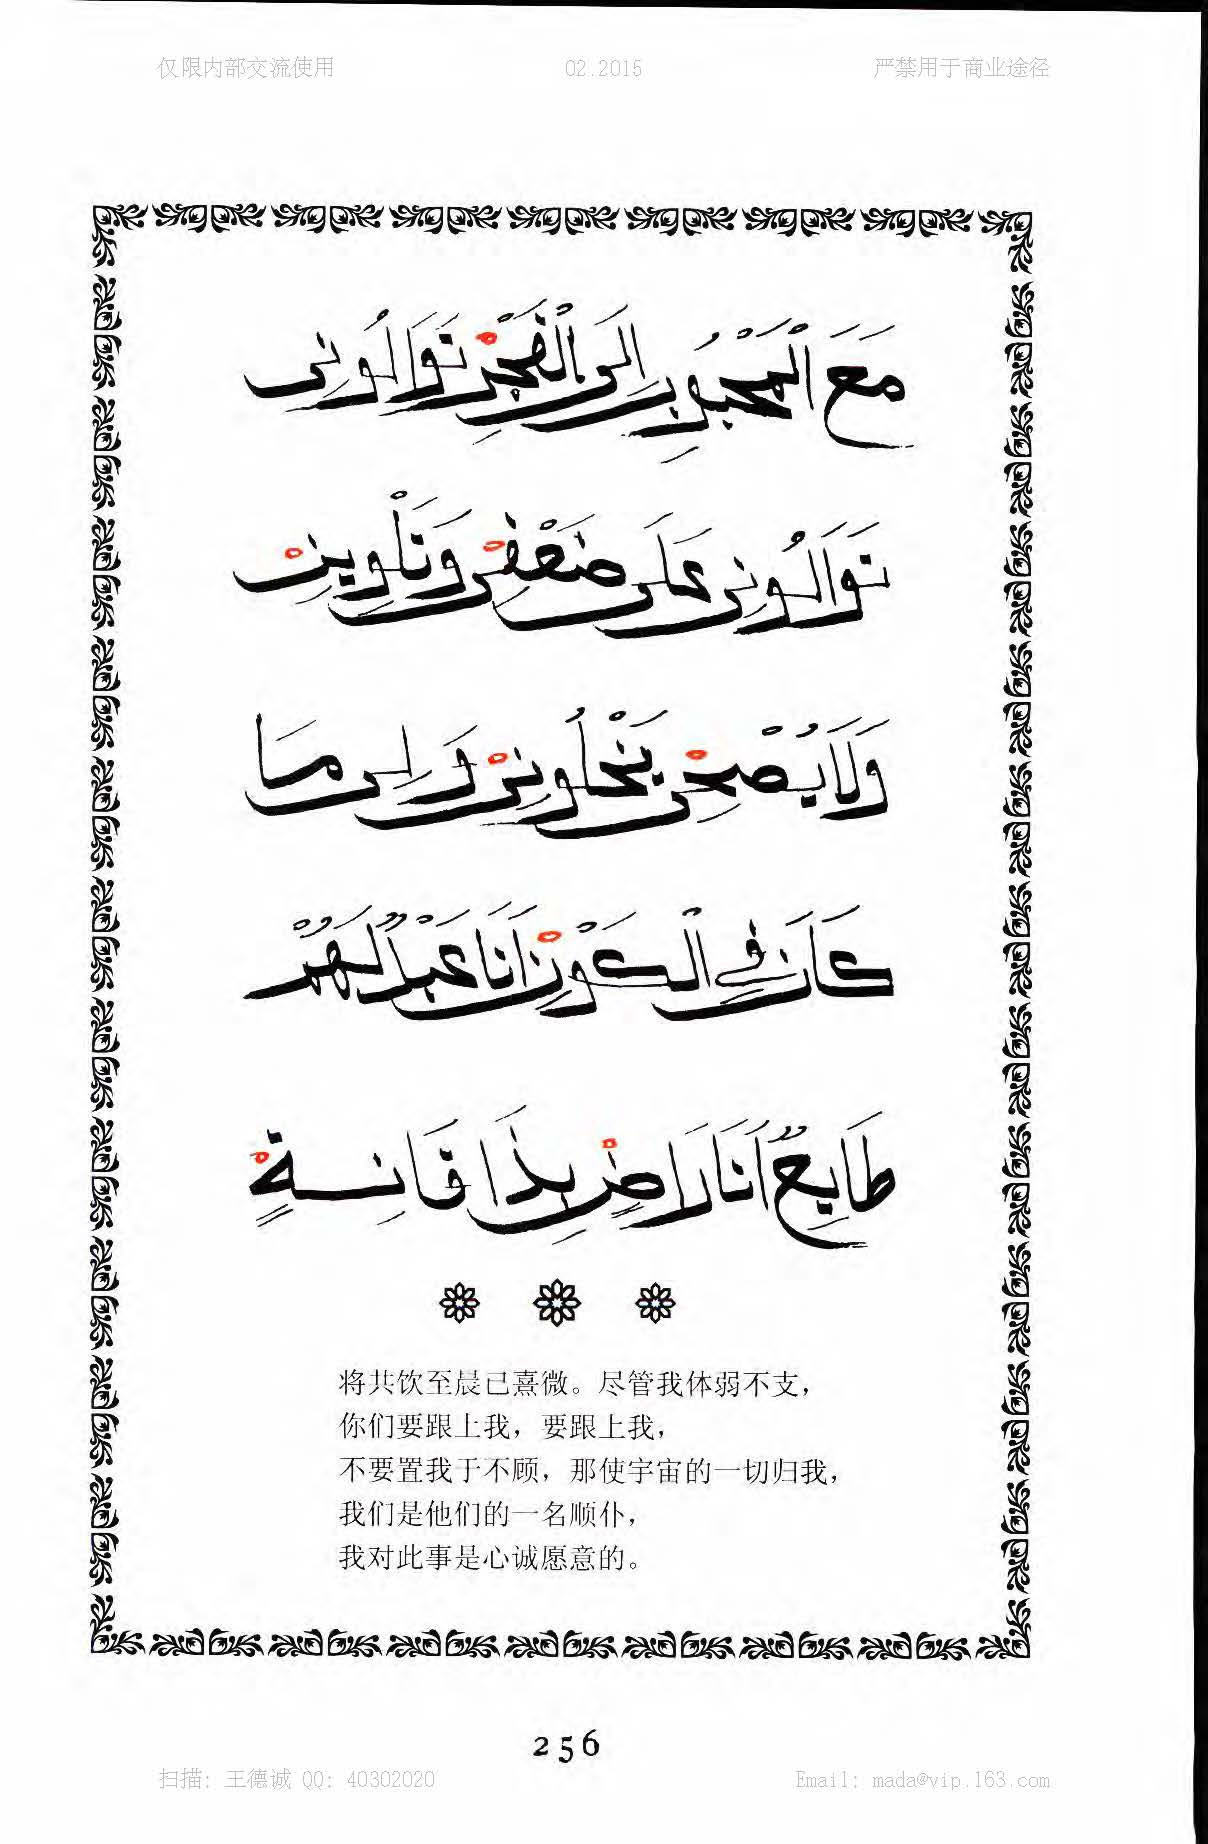 仅限内部交流使用 02.2015 严禁用于商业途径
مَعَ الْمَحْبُوبِ إِلَى الْفَجْرِ نَوَالُونِى
نَوَالُونِى عَلَى ضَعْفِى وَنَلْوِينِ
وَلَا يُصْحِى بَنْحُلُونِى وَلِى مَا
كَانَ فِي الْكَوْنِ أَنَا عَبْدٌ لَهُمْ
طَايِعٌ أَنَا رَاضٍ بِذَا
将共饮至晨已熹微。尽管我体弱不支，
你们要跟上我，要跟上我，
不要置我于不顾，那使宇宙的一切归我，
我们是他们的一名顺仆，
我对此事是心诚愿意的。
256
扫描: 王德诚 QQ: 40302020 Email: mada@vip.163.com